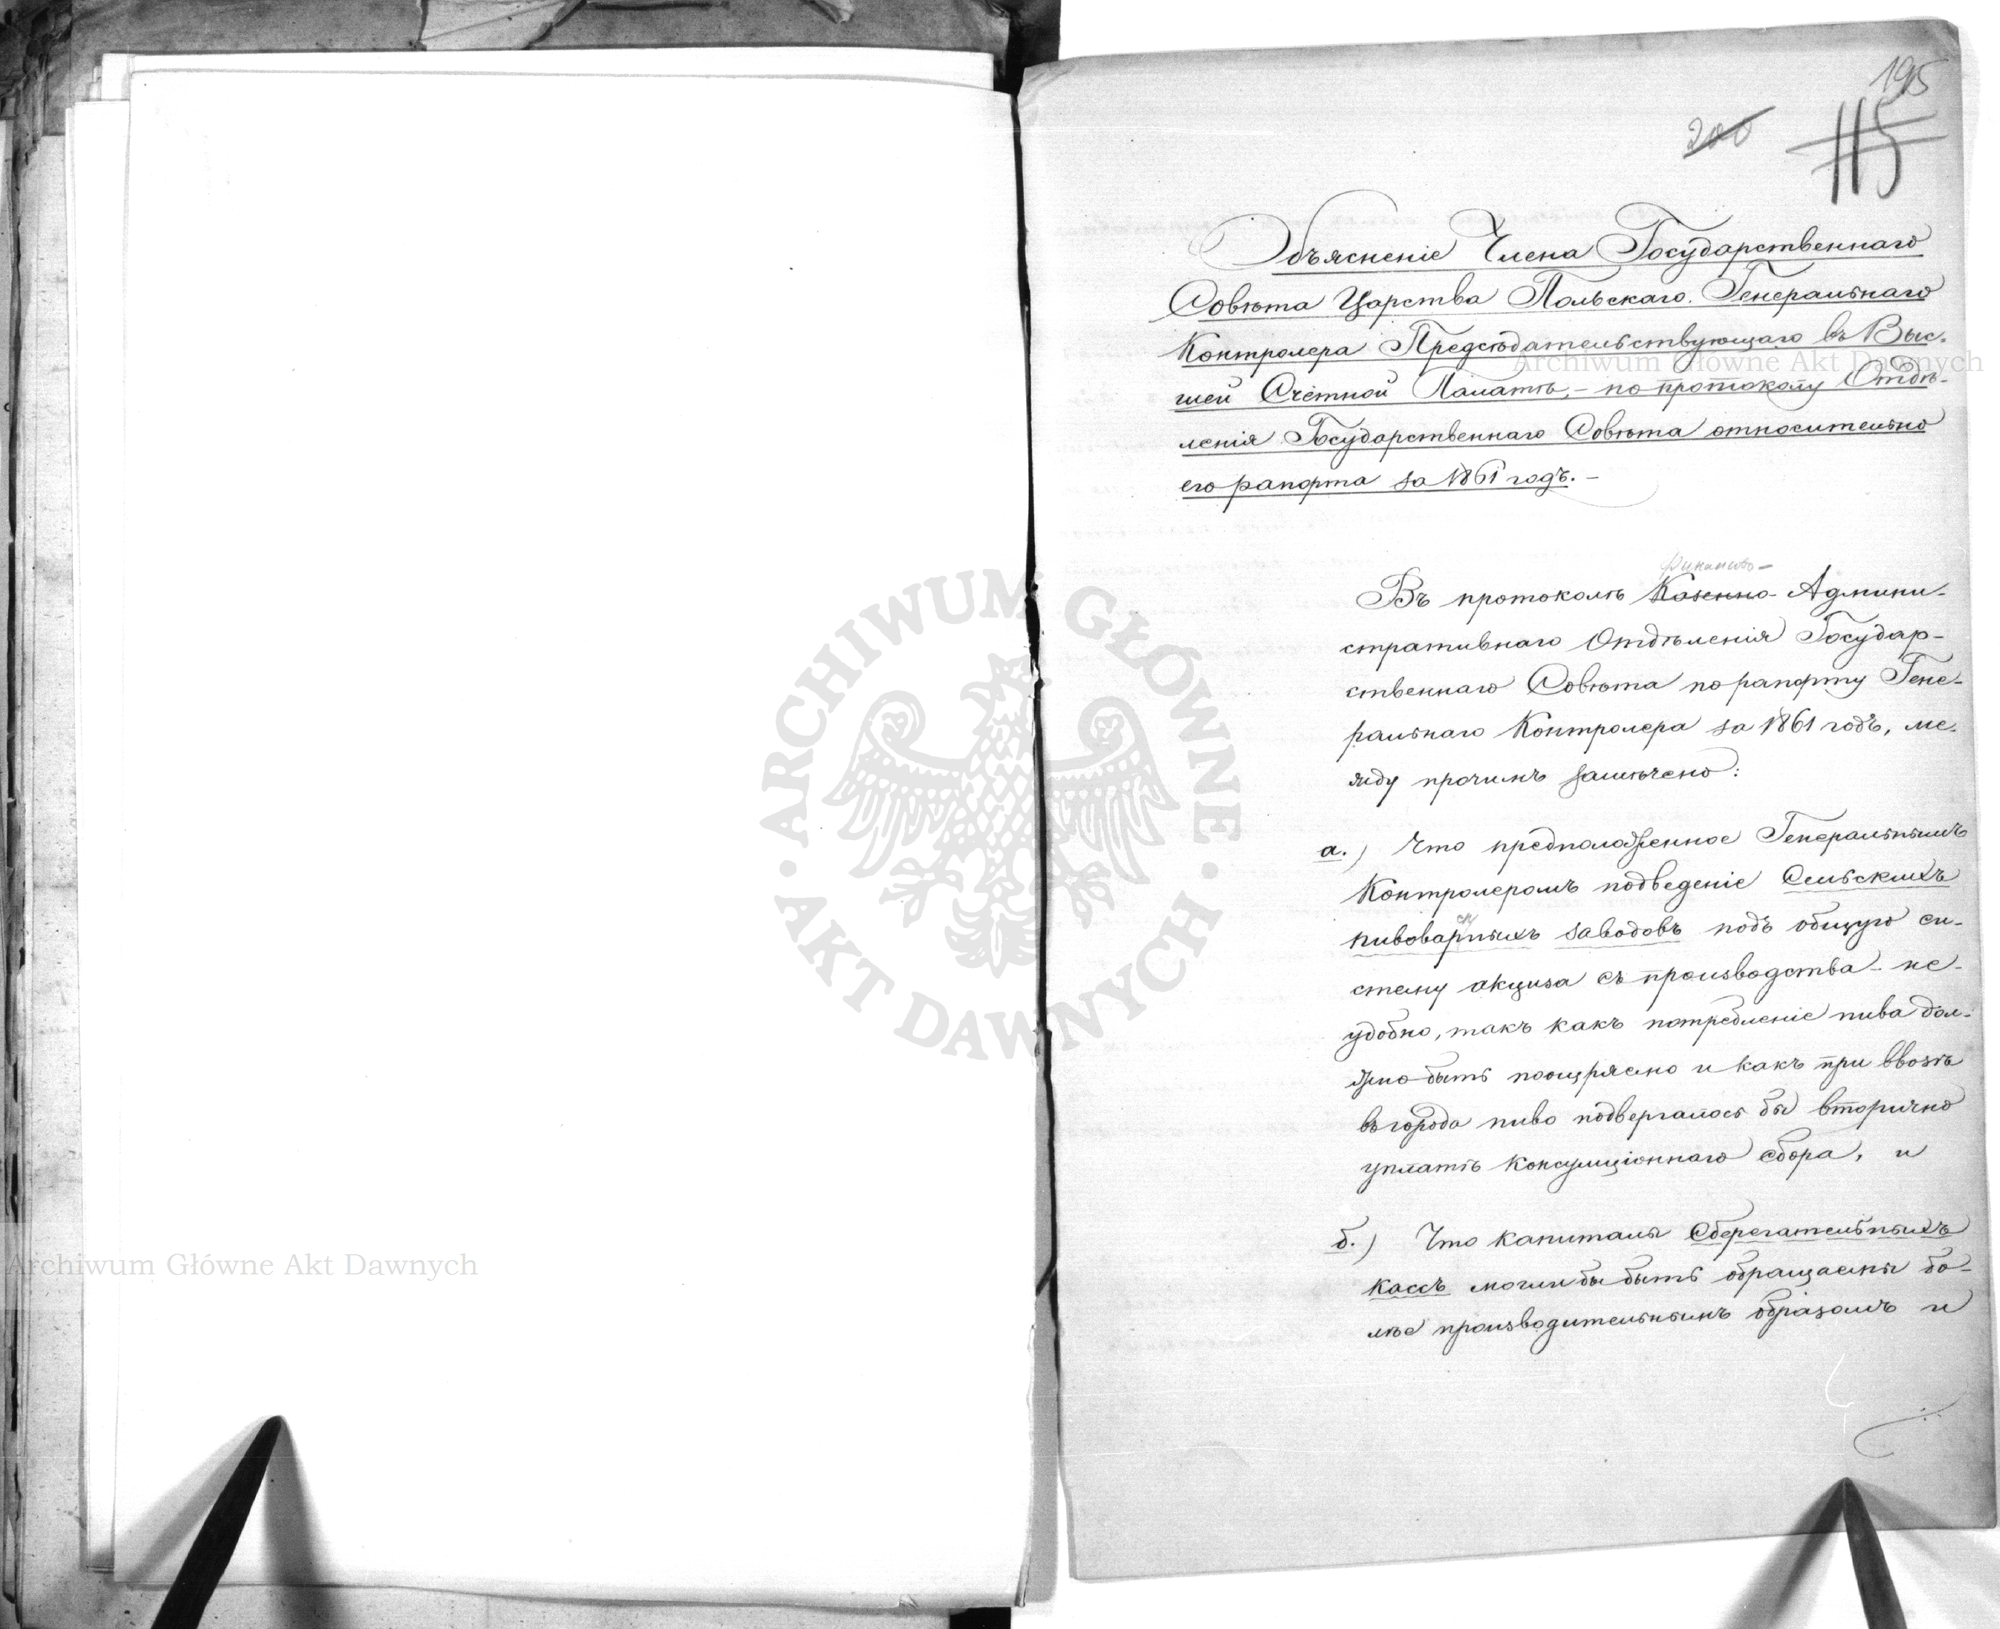 195
200
115
Объясненіе Члена Государственнаго
Совѣта Царства Польскаго. Генеральнаго
Контролера Предсѣдательствующаго въ Выс-
шей Счетной Палатѣ, - по протоколу Отдѣ-
ленія Государственнаго Совѣта относительно
его рапорта за 1861 годъ. -
Финансово-
Въ протоколѣ Казенно-Админи-
стративнаго Отдѣленія Государ-
ственнаго Совѣта по рапорту Гене-
ральнаго Контролера за 1861 годъ, ме-
жду прочимъ замѣчено:
а.) Что предположенное Генеральнымъ
Контролеромъ подведеніе Сельскихъ
пивоварныхъ заводовъ подъ общую си-
стему акциза съ производства - не-
удобно, такъ какъ потребленіе пива дол-
жно быть поощряемо и какъ при ввозѣ
въ города пиво подвергалось бы вторично
уплатѣ консумціоннаго сбора, и
б.) Что капиталы Сберегательныхъ
кассъ могли бы быть обращаемы бо-
лѣе производительнымъ образомъ и
Archiwum Główne Akt Dawnych
Archiwum Główne Akt Dawnych
ARCHIWUM GŁÓWNE
AKT DAWNYCH